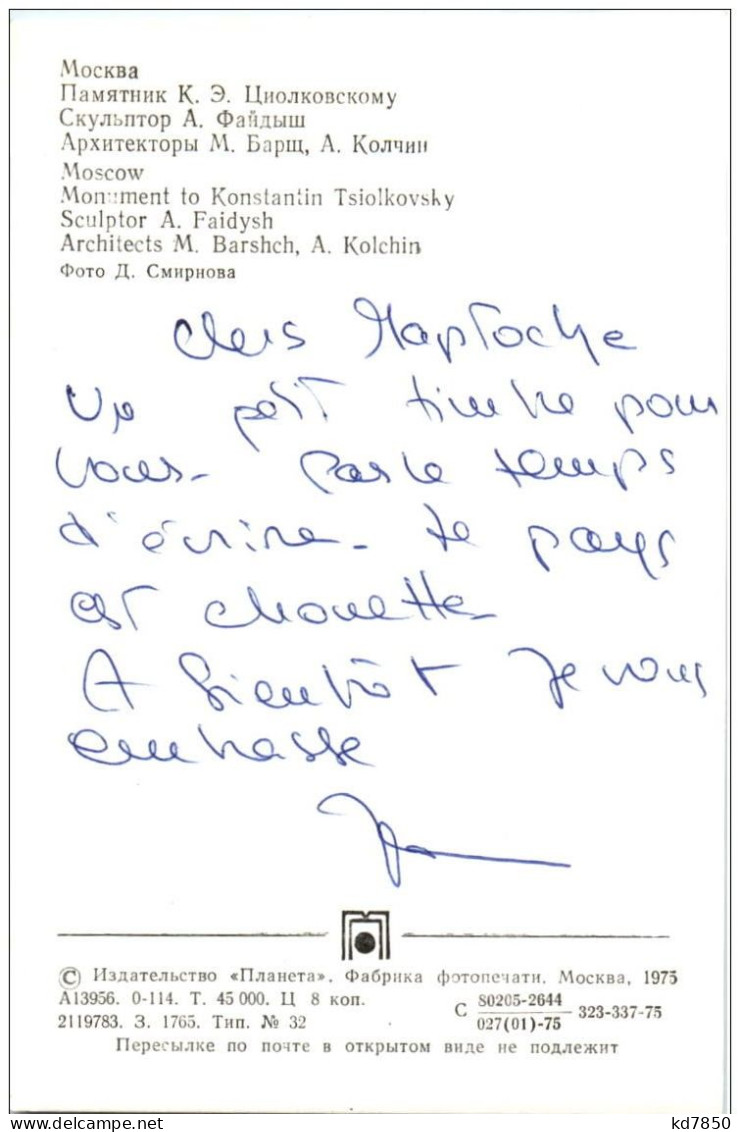 Москва
Памятник К. Э. Циолковскому
Скульптор А. Файдыш
Архитекторы М. Барщ, А. Колчин
Moscow
Monument to Konstantin Tsiolkovsky
Sculptor A. Faidysh
Architects M. Barshch, A. Kolchin
Фото Д. Смирнова
Chers
Un petit timbre pour
vous. Pas le temps
d'écrire. Le pays
est chouette.
A bientôt Je vous
embrasse
© Издательство «Планета». Фабрика фотопечати. Москва, 1975
А13956. 0-114. Т. 45 000. Ц 8 коп.
2119783. З. 1765. Тип. № 32
С 80205-2644 / 027(01)-75 323-337-75
Пересылке по почте в открытом виде не подлежит
kd7850